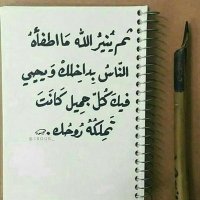 ثم يُنيرُ اللّٰه مَا اطفأهُ
النّاسُ بِداخِلكْ وَيحيي
فيكَ كُلّ جميل كَانت
تَملِكُهُ رُوحُك.